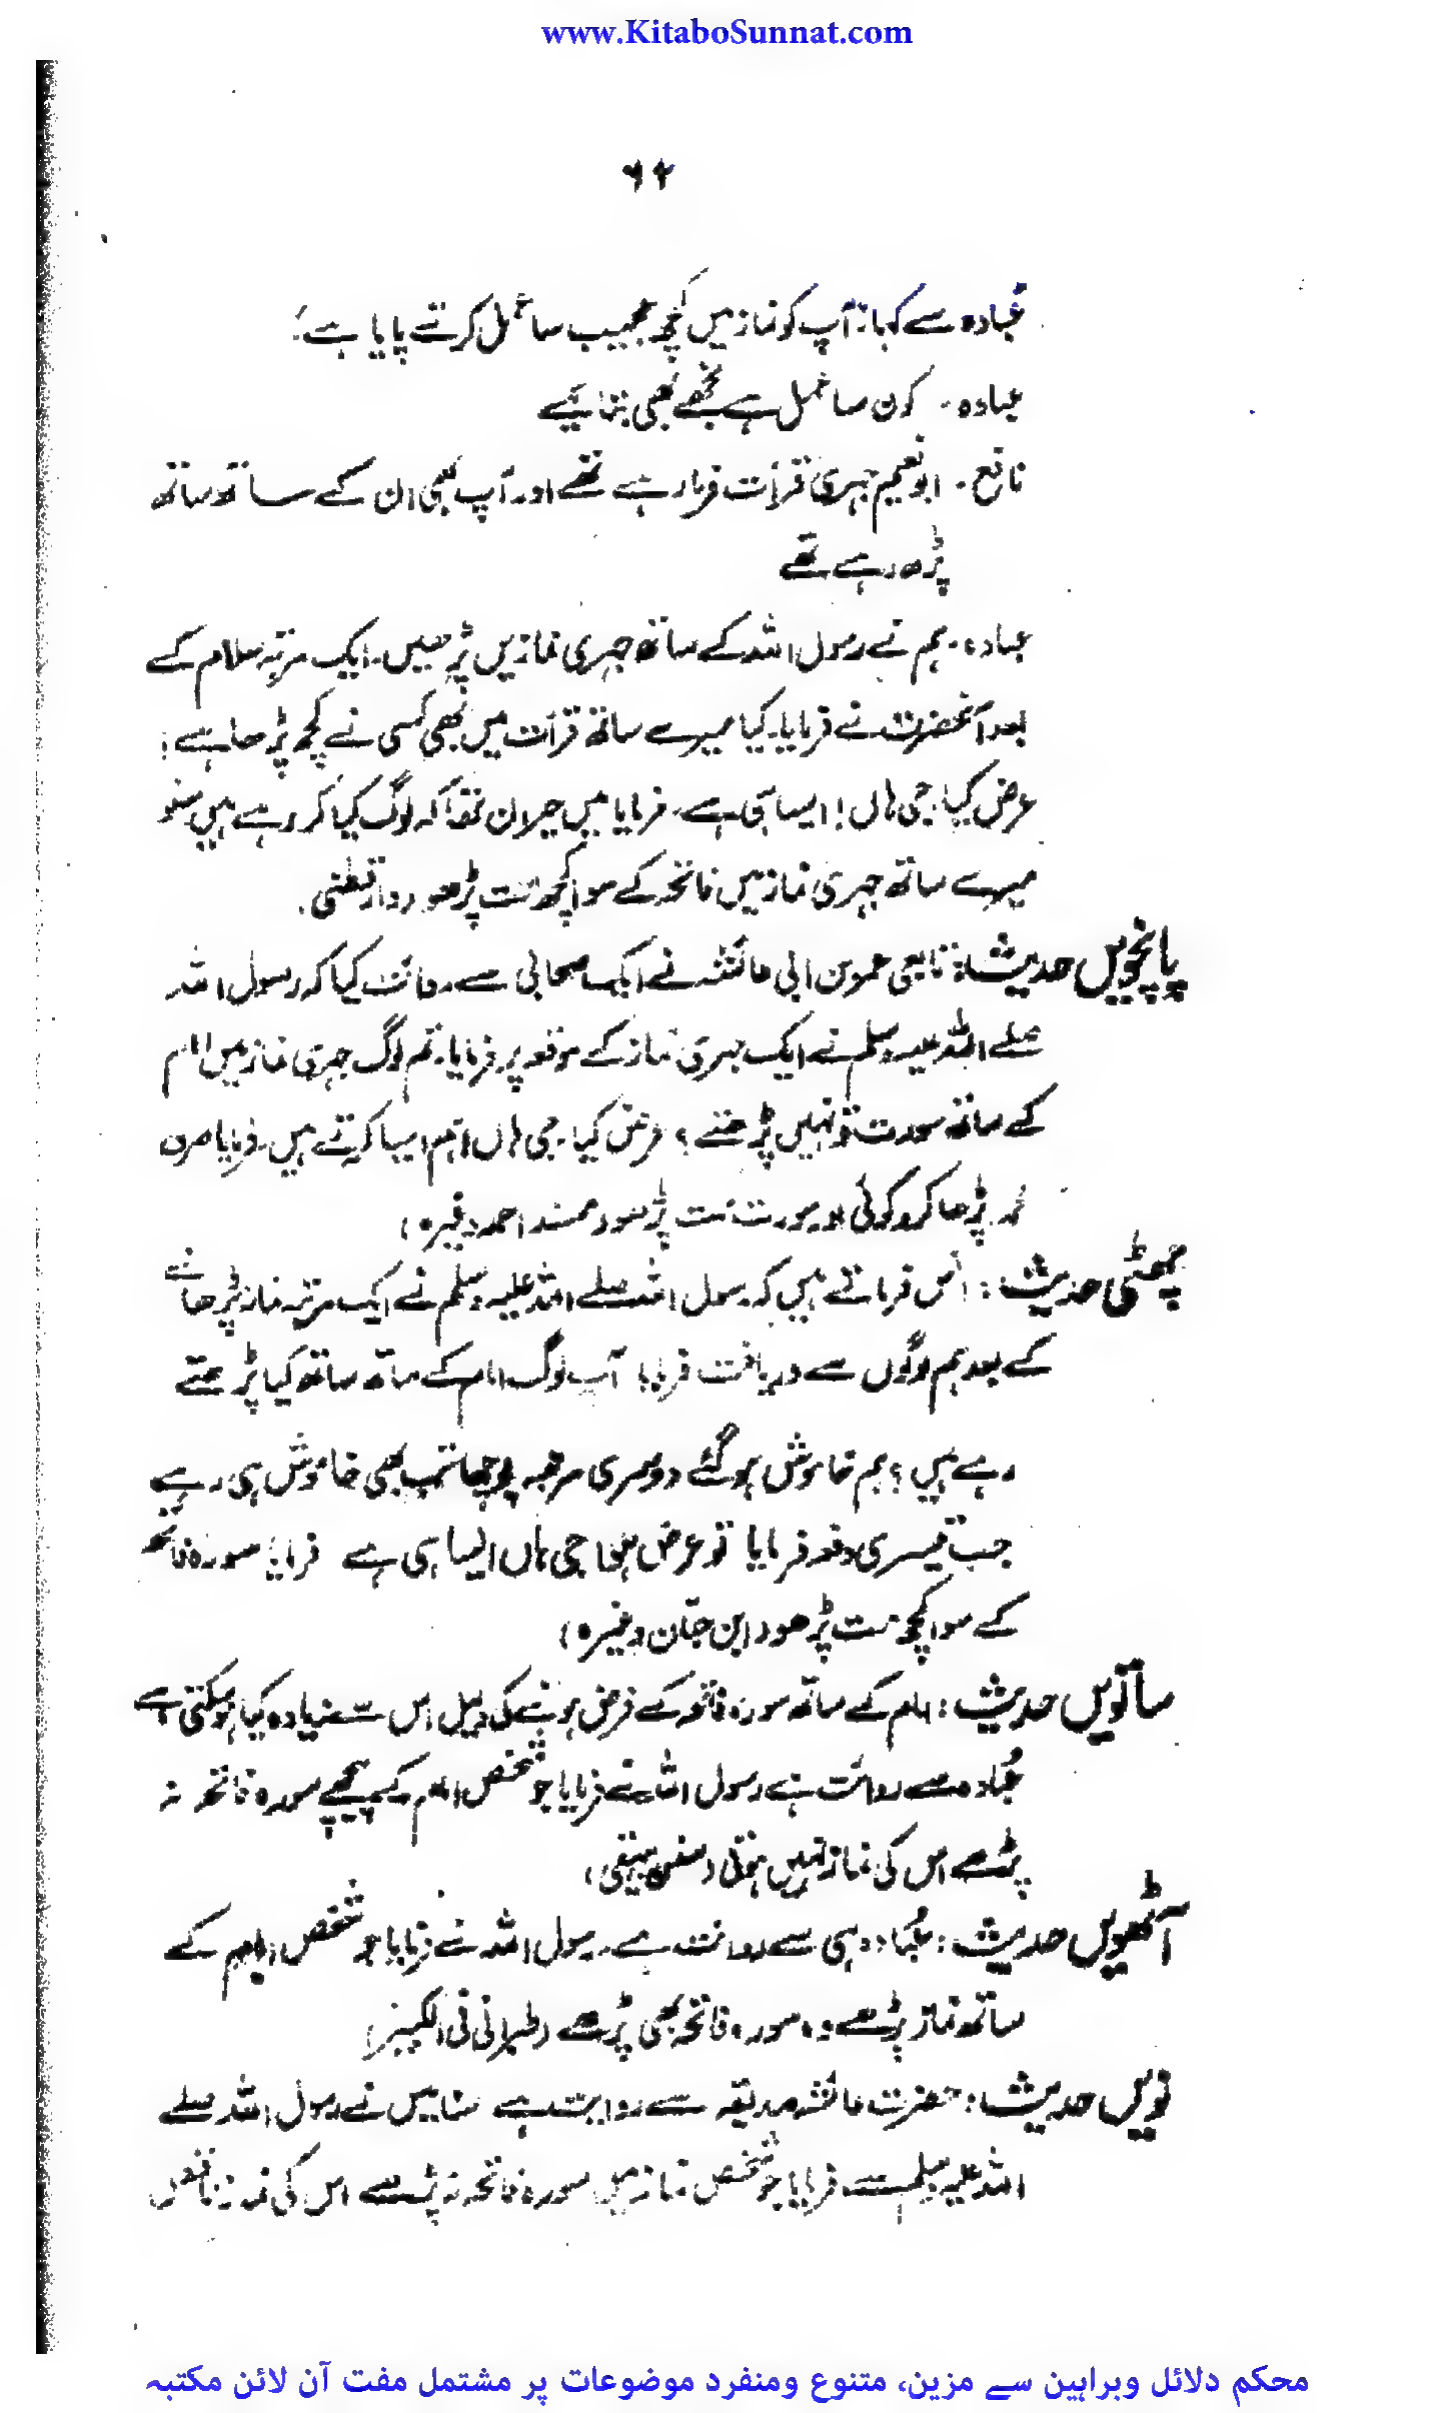 www.KitaboSunnat.com
۶۲
عُبادہ سے کہا: آپ کو نماز میں کچھ عجیب سا عمل کرتے پایا ہے:
عبادہ۔ کون سا عمل ہے مجھے بھی بتائیے
نافع۔ ابونعیم جہری قرأت فرما رہے تھے اور آپ بھی ان کے ساتھ ساتھ
پڑھ رہے تھے
عبادہ۔ ہم نے رسول اللہ کے ساتھ جہری نمازیں پڑھیں۔ ایک مرتبہ سلام کے
بعد آنحضرت نے فرمایا۔ کیا میرے ساتھ قرأت میں بھی کسی نے کچھ پڑھا ہے؛
عرض کیا۔ جی ہاں! ایسا ہی ہے۔ فرمایا میں حیران تھا کہ لوگ کیا کر رہے ہیں سنو
میرے ساتھ جہری نماز میں فاتحہ کے سوا کچھ مت پڑھو (دارقطنی)
پانچویں حدیث: تابعی محمد بن ابی عائشہ نے ایک صحابی سے روائت کیا کہ رسول اللہ
صلے اللہ علیہ وسلم نے ایک جہری نماز کے موقعہ پر فرمایا۔ تم لوگ جہری نماز میں امام
کے ساتھ سورت تو نہیں پڑھتے؟ عرض کیا۔ جی ہاں! ہم ایسا کرتے ہیں۔ فرمایا صرف
پڑھا کرو کوئی اور سورت مت پڑھو (مسند احمد وغیرہ)
چھٹی حدیث: انس فرماتے ہیں کہ رسول اللہ صلے اللہ علیہ وسلم نے ایک مرتبہ نماز پڑھانے
کے بعد ہم لوگوں سے دریافت فرمایا آپ لوگ امام کے ساتھ ساتھ کیا پڑھتے
رہے ہیں؟ ہم خاموش ہو گئے دوسری مرتبہ پوچھا تب بھی خاموش ہی رہے
جب تیسری دفعہ فرمایا تو عرض کیا جی ہاں ایسا ہی ہے فرمایا سورہ فاتحہ
کے سوا کچھ مت پڑھو (ابن حبّان وغیرہ)
ساتویں حدیث: امام کے ساتھ سورہ فاتحہ کے فرض ہونے کی دلیل اس سے زیادہ کیا ہو سکتی ہے
عُبادہ سے روائت ہے رسول اللہ نے فرمایا جو شخص امام کے پیچھے سورہ فاتحہ نہ
پڑھے اس کی نماز نہیں ہوتی (سنن بیہقی)
آٹھویں حدیث: عُبادہ ہی سے روائت ہے۔ رسول اللہ نے فرمایا جو شخص امام کے
ساتھ نماز پڑھے وہ سورہ فاتحہ بھی پڑھے (طبرانی فی الکبیر)
نویں حدیث: حضرت عائشہ صدیقہ سے روایت ہے سنا میں نے رسول اللہ صلے
اللہ علیہ وسلم سے فرمایا جو شخص نماز میں سورہ فاتحہ نہ پڑھے اس کی نماز ناقص
محکم دلائل وبراہین سے مزین، متنوع ومنفرد موضوعات پر مشتمل مفت آن لائن مکتبہ